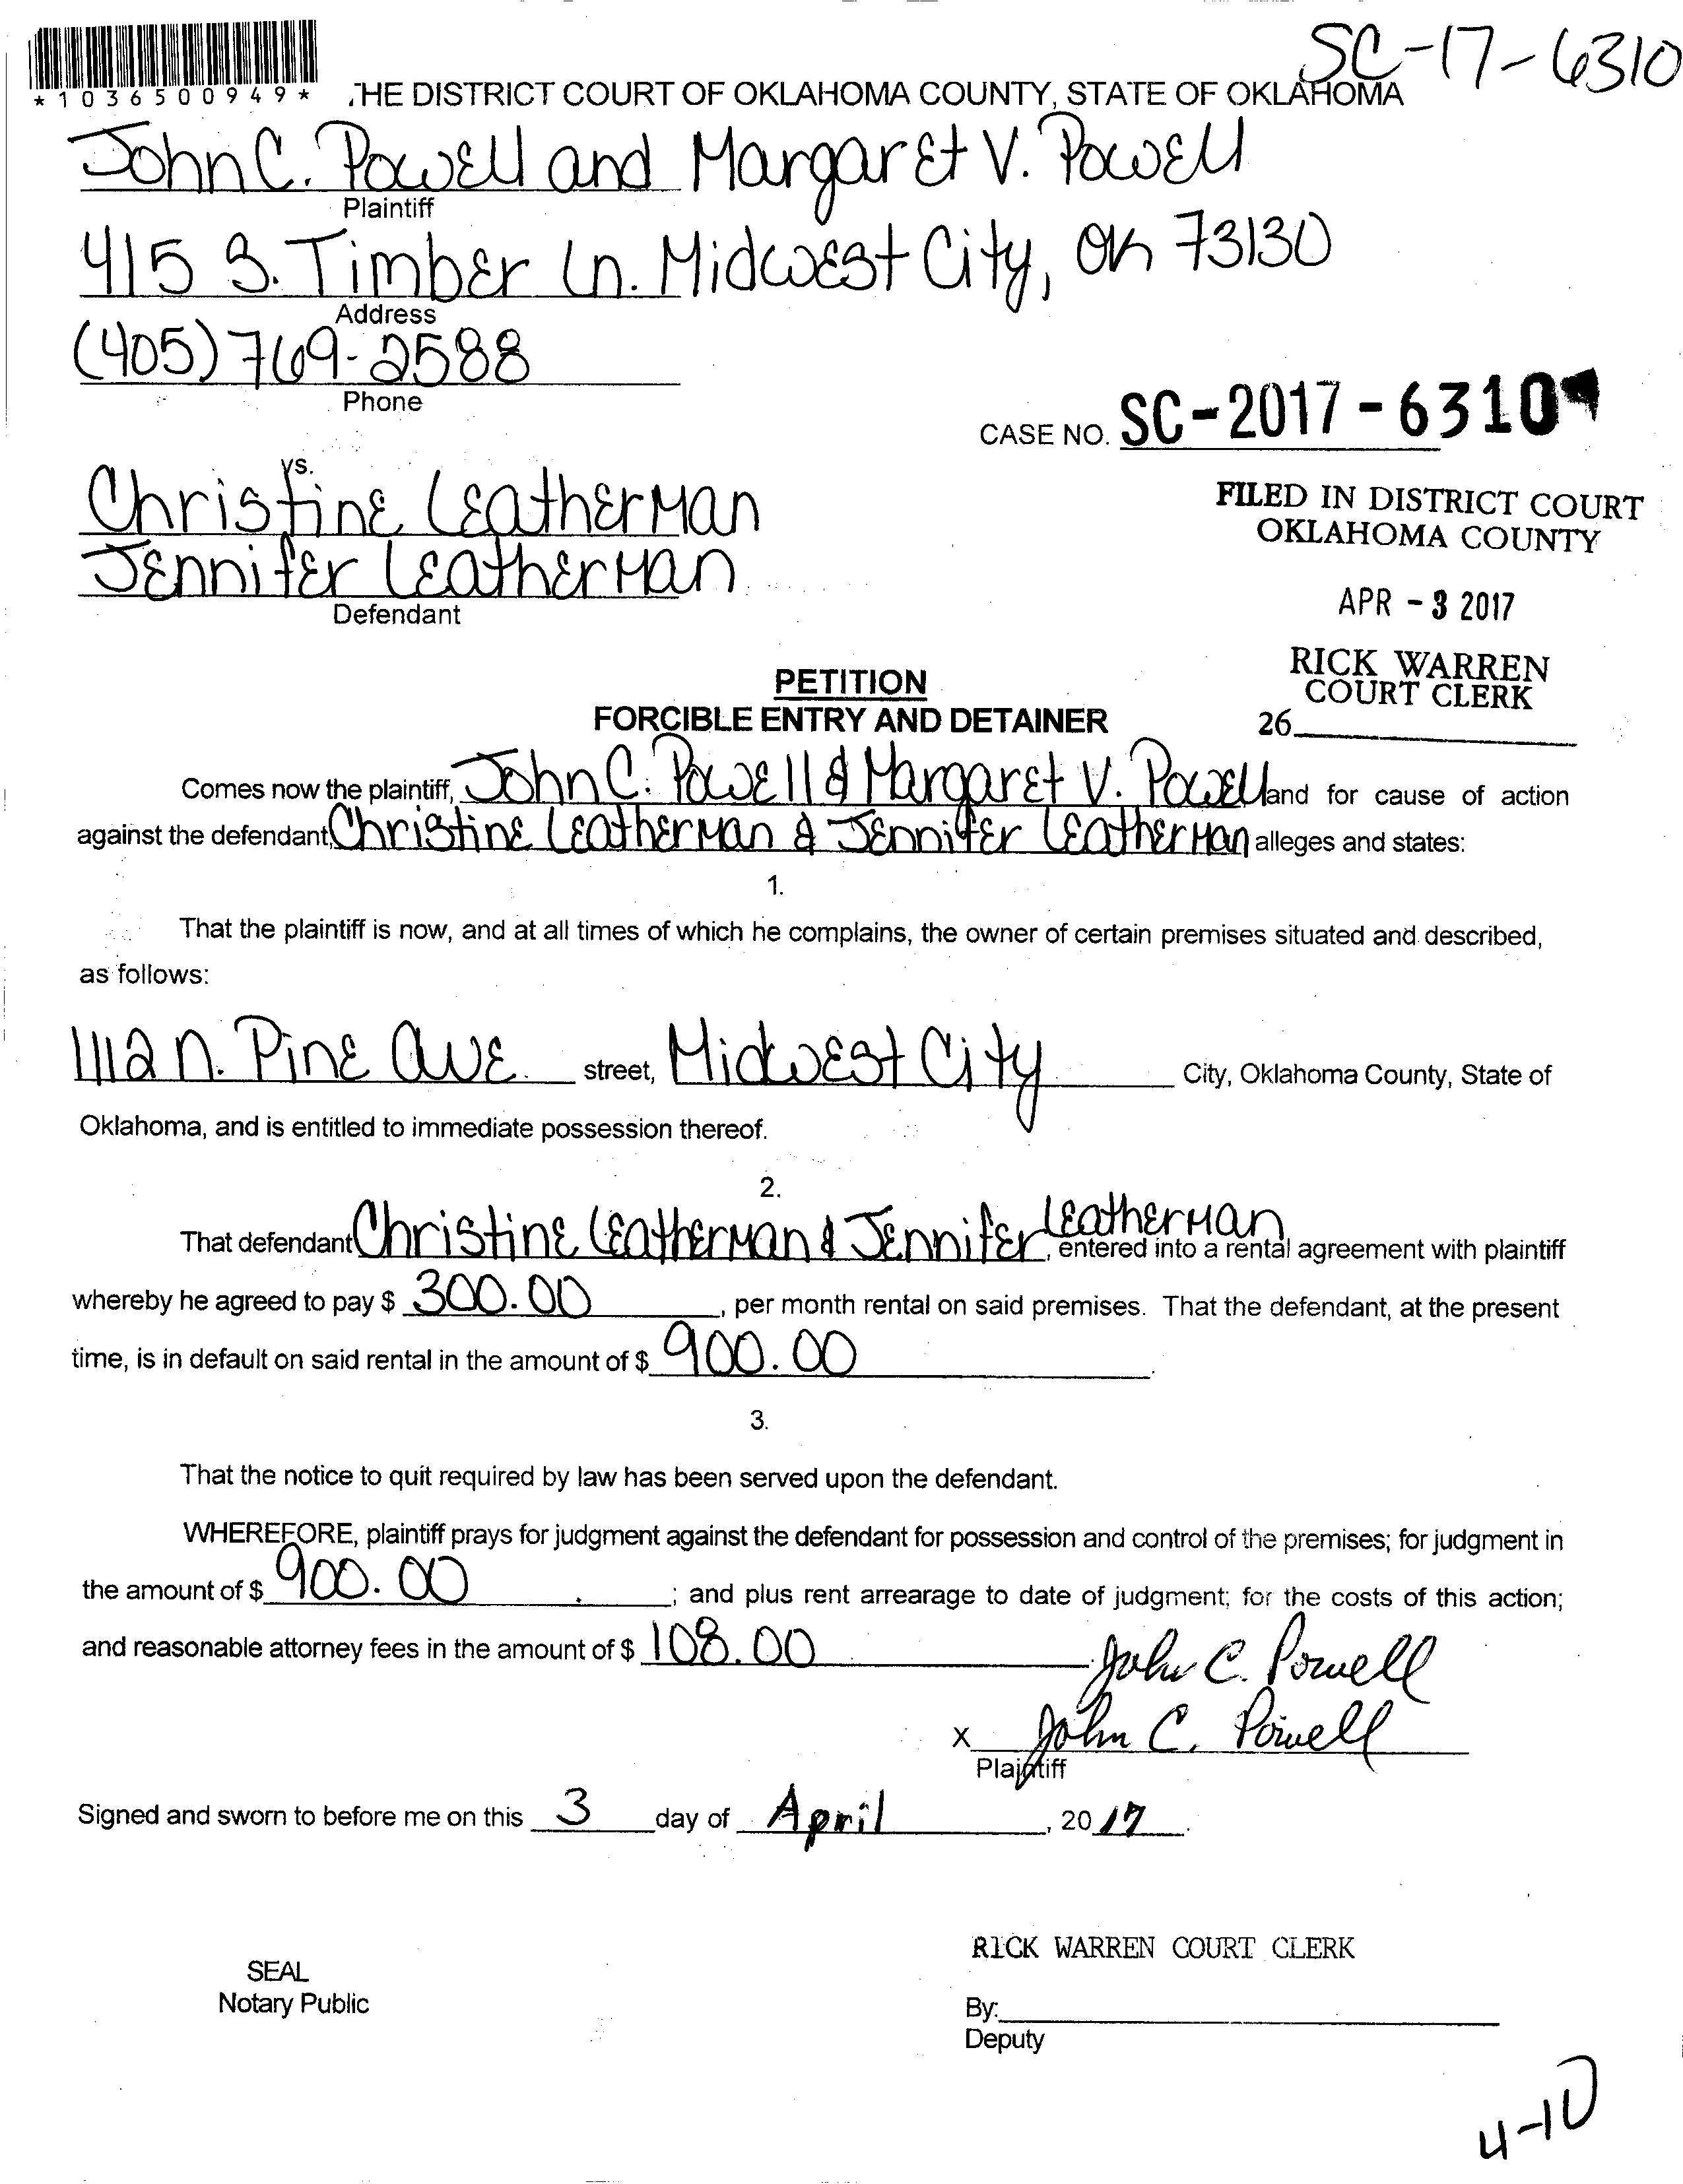 SC-17-6310
*1036500949*
THE DISTRICT COURT OF OKLAHOMA COUNTY, STATE OF OKLAHOMA
John C. Powell and Margaret V. Powell
Plaintiff
415 S. Timber Ln. Midwest City, OK 73130
Address
(405) 769-2588
Phone
CASE NO. SC-2017-6310
vs.
Christine Leatherman
Jennifer Leatherman
Defendant
FILED IN DISTRICT COURT
OKLAHOMA COUNTY
APR - 3 2017
RICK WARREN
COURT CLERK
26
PETITION
FORCIBLE ENTRY AND DETAINER
Comes now the plaintiff, John C. Powell & Margaret V. Powell and for cause of action
against the defendant, Christine Leatherman & Jennifer Leatherman alleges and states:
1.
That the plaintiff is now, and at all times of which he complains, the owner of certain premises situated and described,
as follows:
1112 N. Pine Ave. street, Midwest City City, Oklahoma County, State of
Oklahoma, and is entitled to immediate possession thereof.
2.
That defendant Christine Leatherman & Jennifer Leatherman, entered into a rental agreement with plaintiff
whereby he agreed to pay $ 300.00, per month rental on said premises. That the defendant, at the present
time, is in default on said rental in the amount of $ 900.00.
3.
That the notice to quit required by law has been served upon the defendant.
WHEREFORE, plaintiff prays for judgment against the defendant for possession and control of the premises; for judgment in
the amount of $ 900.00; and plus rent arrearage to date of judgment; for the costs of this action;
and reasonable attorney fees in the amount of $ 108.00
John C. Powell
x John C. Powell
Plaintiff
Signed and sworn to before me on this 3 day of April, 20 17.
RICK WARREN COURT CLERK
SEAL
Notary Public
By:
Deputy
4-10